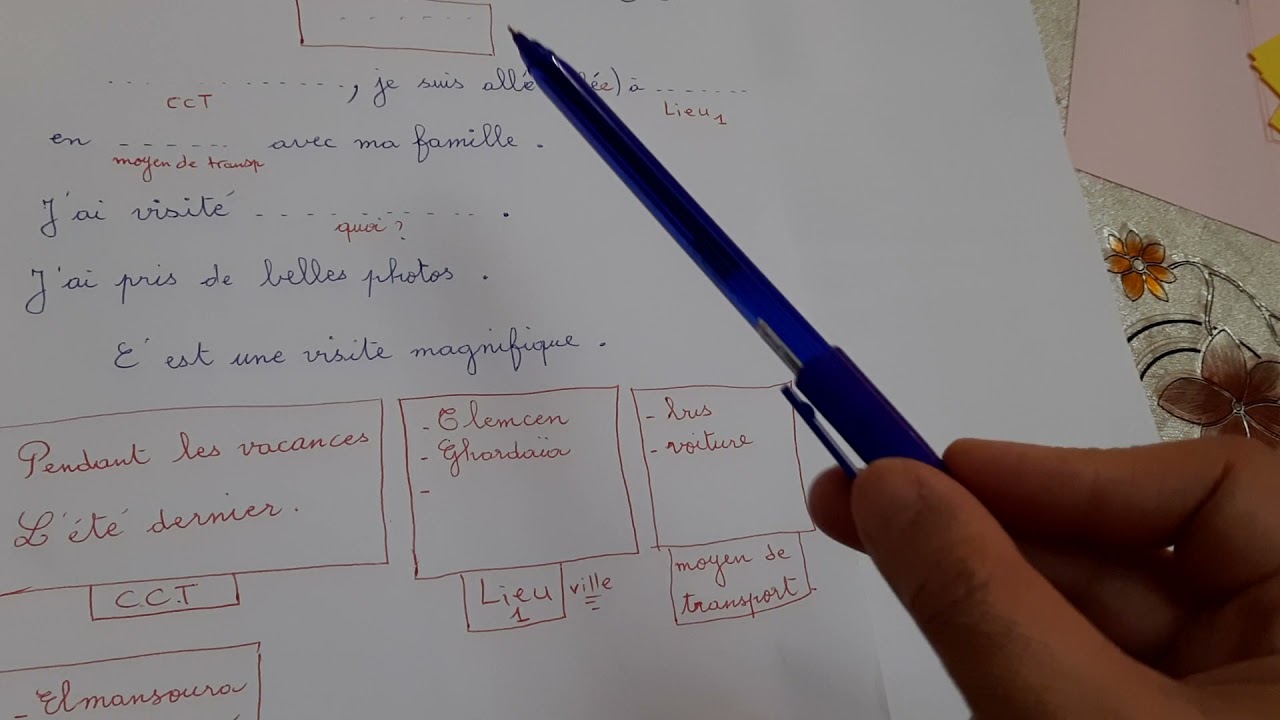 , je suis allé ée) à
CCT
Lieu 1
en avec ma famille .
moyen de transp
J'ai visité .
quoi ?
J'ai pris de belles photos .
C'est une visite magnifique .
Pendant les vacances
L'été dernier .
C.C.T
- Tlemcen
- Ghardaïa
-
Lieu 1 ville
- bus
- voiture
moyen de
transport .
- Elmansoura